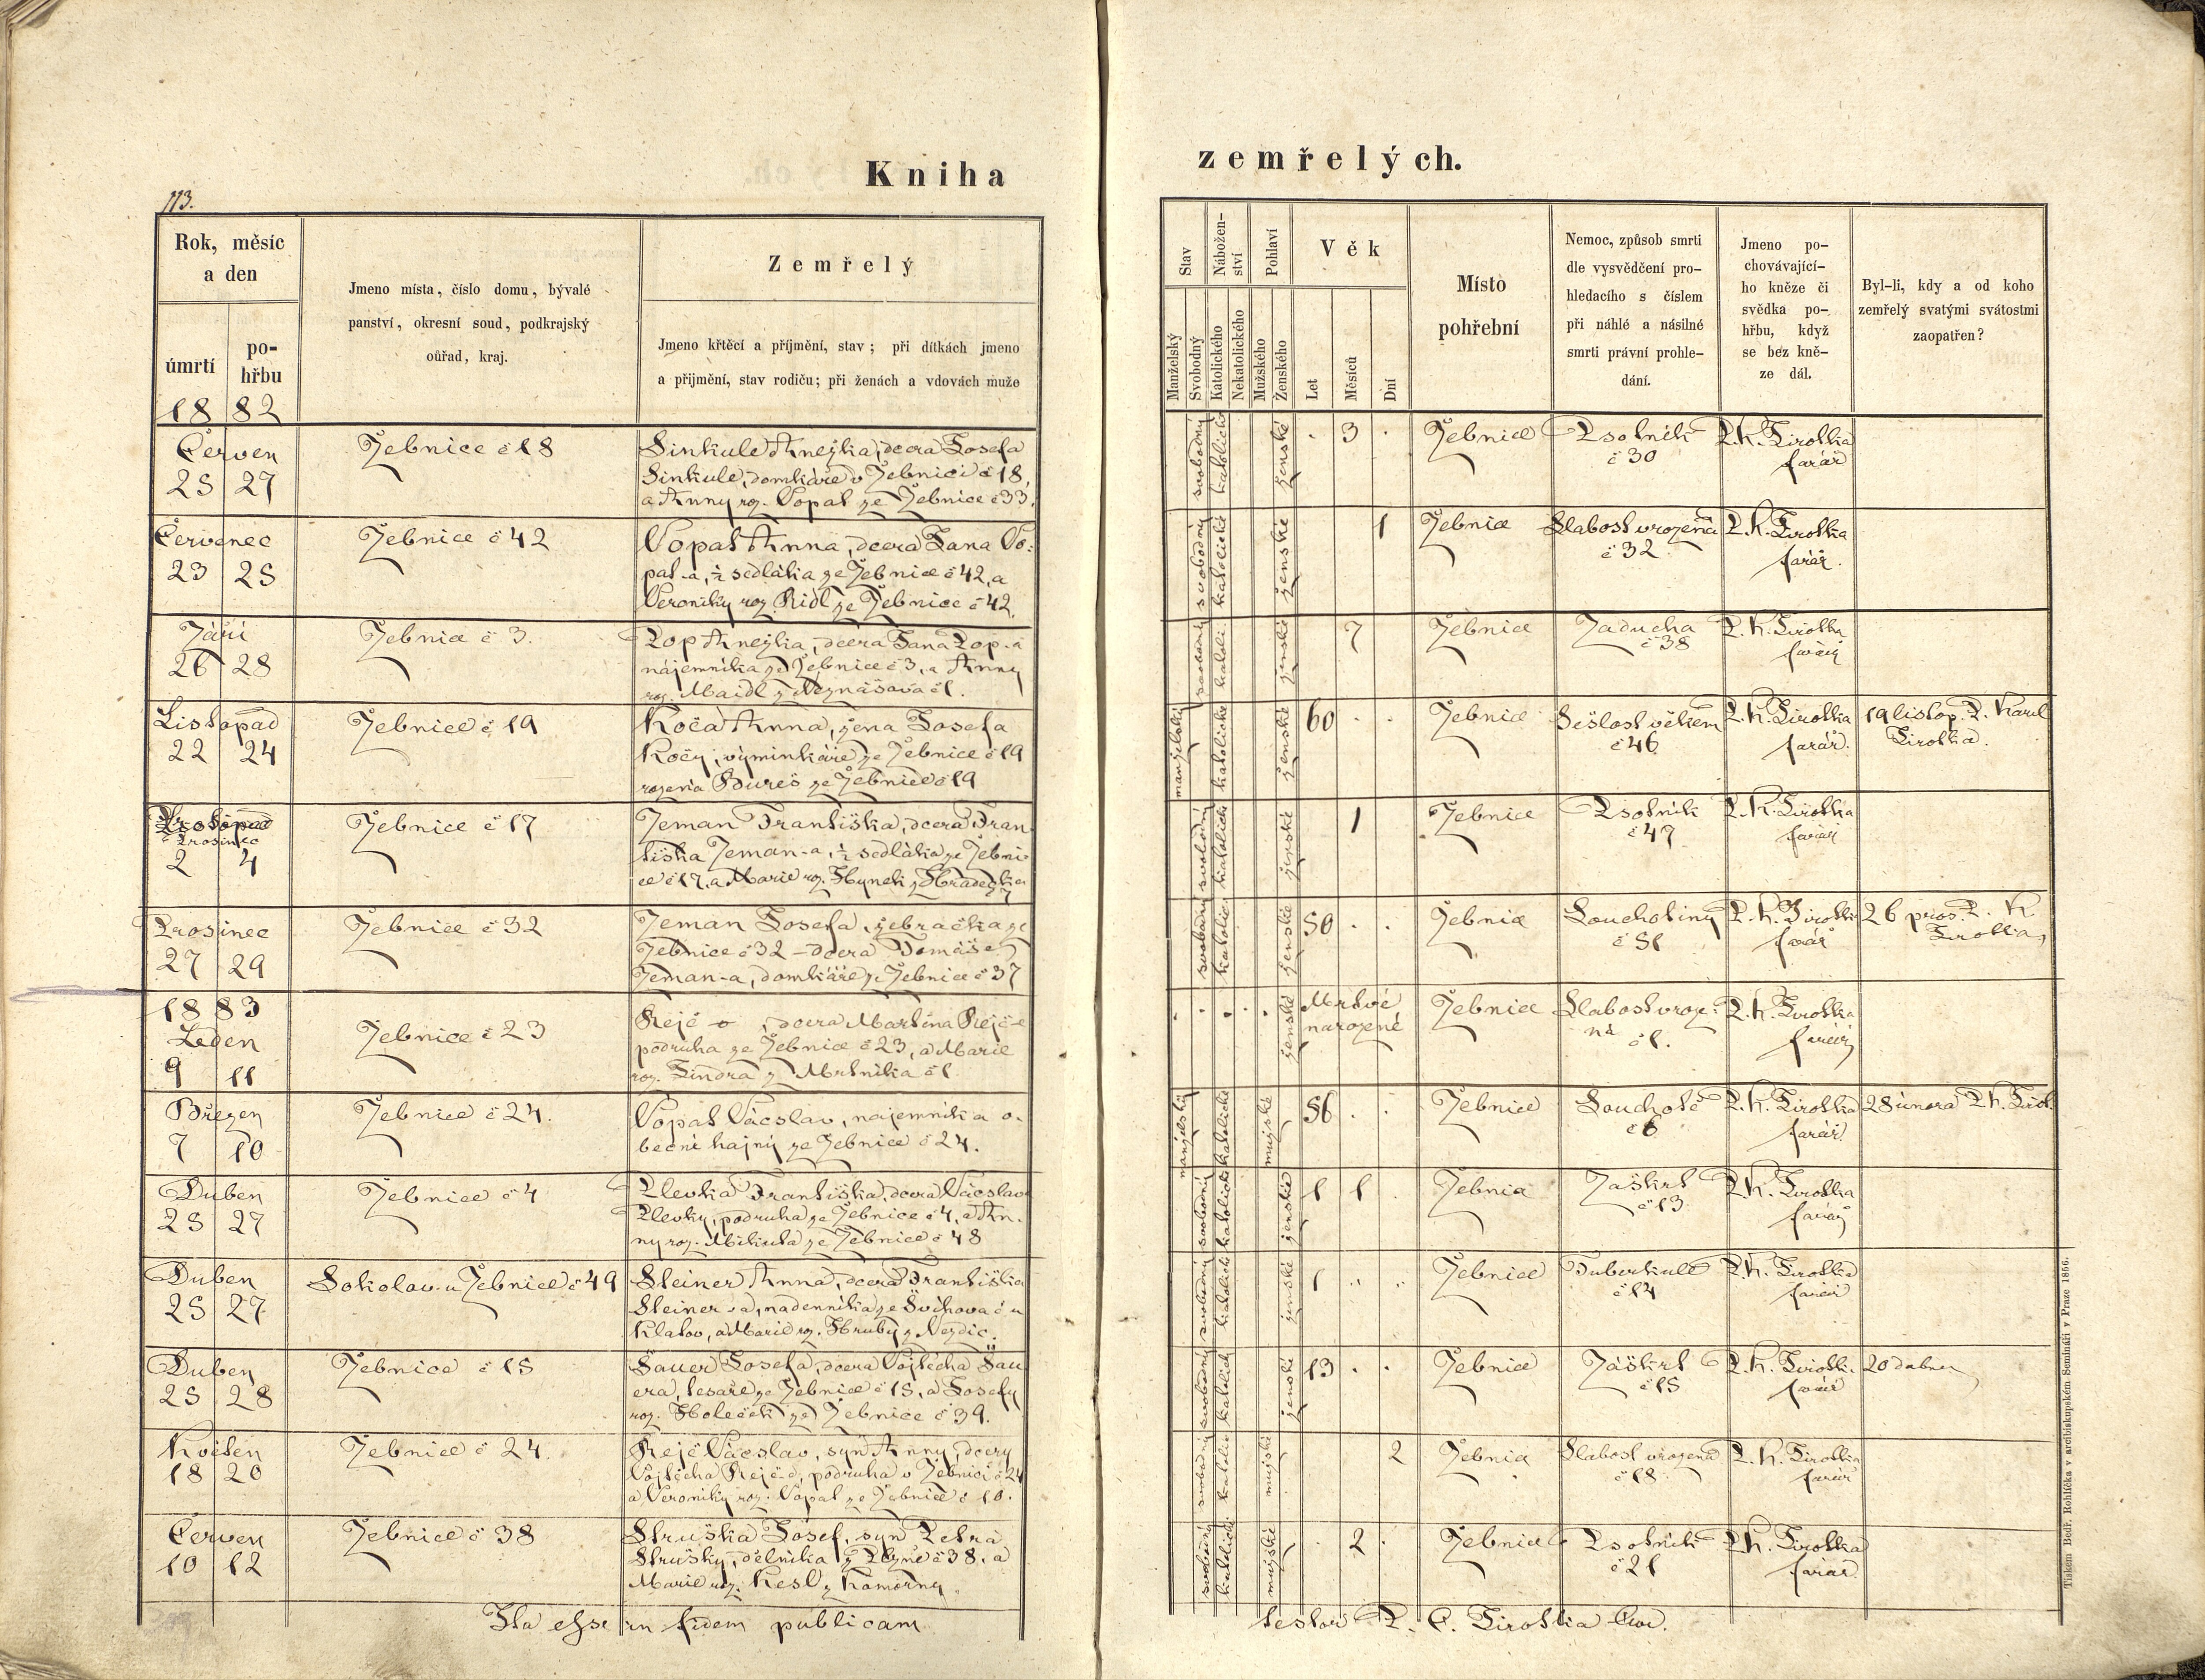 Kniha
zemřelých.
113.
Rok, měsíc
a den
úmrtí
po-
hřbu
1882
Jmeno místa, číslo domu, bývalé
panství, okresní soud, podkrajský
ouřad, kraj.
Zemřelý
Jmeno křtěcí a příjmění, stav; při dítkách jmeno
a přijmění, stav rodiču; při ženách a vdovách muže
Stav
Nábožen-
ství
Pohlaví
Věk
Manželský
Svobodný
Katolického
Nekatolického
Mužského
Ženského
Let
Měsíců
Dní
Místo
pohřební
Nemoc, způsob smrti
dle vysvědčení pro-
hledacího s číslem
při náhlé a násilné
smrti právní prohle-
dání.
Jmeno po-
chovávající-
ho kněze či
svědka po-
hřbu, když
se bez kně-
ze dál.
Byl-li, kdy a od koho
zemřelý svatými svátostmi
zaopatřen?
Červen
25 27
Žebnice č 18
Sinkule Anežka, dcera Josefa
Sinkule, domkáře v Žebnici č 18,
a Anny roz. Vopat ze Žebnice č 33.
svobodný katolické ženské . 3 .
Žebnice
Psotník
č 30
P. K. Jirotka
farář
Červenec
23 25
Žebnice č 42
Vopat Anna, dcera Jana Vo:
pat-a, ½ sedláka ze Žebnice č 42, a
Veroniky roz. Ridl ze Žebnice č 42.
svobodný katolické ženské 1
Žebnice
Slabost vrozená
č 32
P. K. Jirotka
farář.
Září
26 28
Žebnice č 3.
Pop Anežka, dcera Jana Pop-a
nájemníka ze Žebnice č 3, a Anny
roz. Maidl z Neznašova č 1.
svobodný katoli. ženské 7
Žebnice
Zaducha
č 38
P. K. Jirotka
farář
Listopad
22 24
Žebnice č 19
Kočà Anna, žena Josefa
Kočy, výminkáře ze Žebnice č 19
rozená Bureš ze Žebnice č 19
manželský katolické ženské 60 . .
Žebnice
Sešlost věkem
č 46
P. K. Jirotka
farář.
19 listop. P. Karel
Jirotka.
Prosinec
2 4
Žebnice č 17
Zeman Františka, dcera Fran
tiška Zeman-a, ½ sedláka ze Žebni
ce č 17, a Marie roz. Hynek z Hradecka
svobodný katolické ženské 1
Žebnice
Psotník
č 47
P. K. Jirotka
farář
Prosinec
27 29
Žebnice č 32
Zeman Josefa, žebračka ze
Žebnice č 32 – dcera Tomáše
Zeman-a, domkáře ze Žebnice č 37
svobodný katolické ženské 50 . .
Žebnice
Souchotiny
č 51
P. K. Jirotka
farář
26 pros. P. K
Jirotka
1883
Leden
9 11
Žebnice č 23
Rejč o , dcera Martina Rejč-e
podruha ze Žebnice č 23, a Marie
roz. Jindra z Mrtníka č 1
ženské
Mrtvé
narozené
Žebnice
Slabost vroze:
ná č 1.
P. K. Jirotka
farář
Březen
7 10
Žebnice č 24.
Vopat Vácslav, nájemník a o.
becní hajný ze Žebnice č 24.
manželský katolické mužské 56 . .
Žebnice
Souchotě
č 6
P. K. Jirotka
farář.
28 února P. K. Jirot.
Duben
25 27
Žebnice č 4
Plevka Františka, dcera Vácslav
Plevky, podruha ze Žebnice č 4, a An.
ny roz. Mikula ze Žebnice č 48
svobodný katolické ženské 1 1
Žebnice
Záškrt
č 13
P. K. Jirotka
farář
Duben
25 27
Sokolov. u Žebnice č 49
Steiner Anna, dcera Františka
Steiner-a, nadenníka ze Švíhova č u
Klatov, a Marie roz. Hrubý z Nezdic.
svobodný katolické ženské 1
Žebnice
Tuberkule
č 14
P. K. Jirotka
farář
Duben
25 28
Žebnice č 15
Sauer Josefa, dcera Vojtěcha Sau
era, tesaře ze Žebnice č 15, a Josefy
roz. Holeček ze Žebnice č 39.
svobodný katolické ženské 13 . .
Žebnice
Záškrt
č 15
P. K. Jirotka
farář
20 dubna
Květen
18 20
Žebnice č 24.
Rejč Vácslav, syn Anny, dcery
Vojtěcha Rejč-e, podruha v Žebnici č 24
a Veroniky roz. Vopat ze Žebnice č 10.
svobodný katolické mužské 2
Žebnice
Slabost vrozená
č 18
P. K. Jirotka
farář
Červen
10 12
Žebnice č 38
Struska Josef, syn Petra
Strusky, dělníka z Plzně č 38, a
Marie roz. Kesl z Komorny
svobodný katolické mužské . 2 .
Žebnice
Psotník
č 21
P. K. Jirotka
farář.
Ita esse in fidem publicam
testor P. C. Jirotka
Tiskem Bedř. Rohlíčka v arcibiskupském Semináři v Praze 1866.